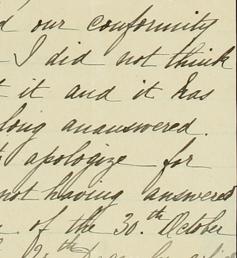 our conformity
I did not think
it and it has
long ananswered.
apologize for
not having answered
of the 30.th October